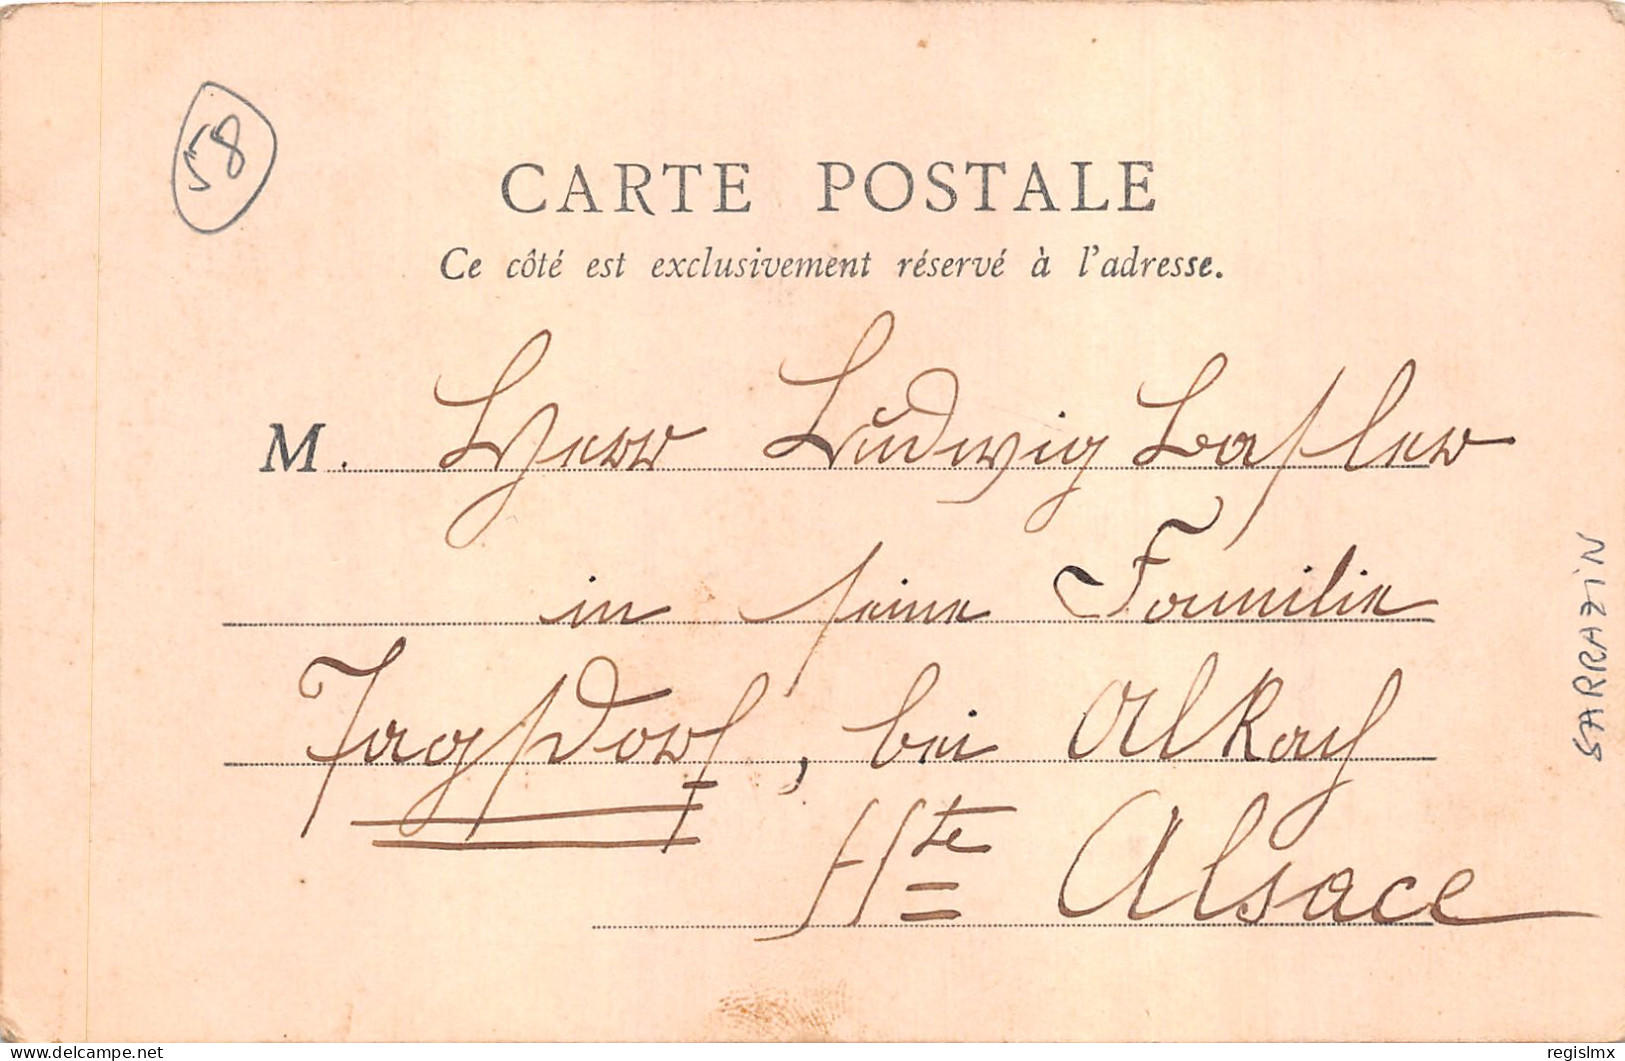 58
CARTE POSTALE
Ce côté est exclusivement réservé à l'adresse.
M. Herr Ludwig
in seine Familie
Jagsdorf, bei Alkach
Hte Alsace
SARRAZIN
delcampe.net
regislmx